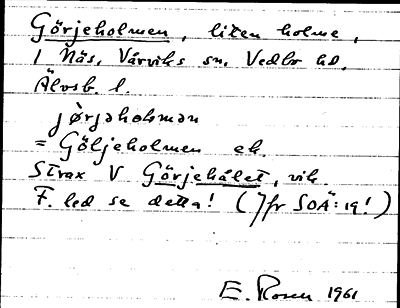 Görjeholmen, liten holme,
i Näs, Vårviks sn, Vedbo hd,
Älvsb. l.
jø̀rjahåḷmən
= Göljeholmen ek.
Strax V Görjehålet, vik
F. led se detta! (Jfr SOÄ: 19!)
E. Rosen 1961